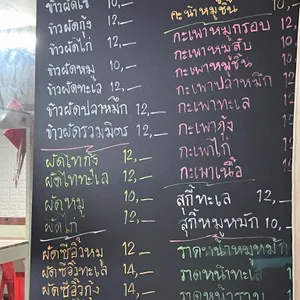 ข้าวผัดไข่ 10,—
ข้าวผัดกุ้ง 12,—
ข้าวผัดไก่ 12,—
ข้าวผัดหมู 10,—
ข้าวผัดทะเล 12,—
ข้าวผัดปลาหมึก 12,—
ข้าวผัดรวมมิตร 12,—
ผัดไทกุ้ง 12,—
ผัดไททะเล 12,—
ผัดหมู 10,—
ผัดไก่ 12,—
ผัดซีอิ๊วหมู 12,—
ผัดซีอิ๊วทะเล 14,—
ผัดซีอิ๊วกุ้ง 14,—
คะน้าหมูชิ้น 10
กะเพาหมูกรอบ 12,—
กะเพาหมูสับ 10
กะเพาหมูชิ้น 10
กะเพาปลาหมึก 12
กะเพาทะเล 12
กะเพากุ้ง 12
กะเพาไก่ 12
กะเพาเนื้อ 12
สุกี้ทะเล 12,—
สุกี้หมูหมัก 10,—
ราดหน้าหมูหมัก
ราดหน้าทะเล
ราดหน้ารวม